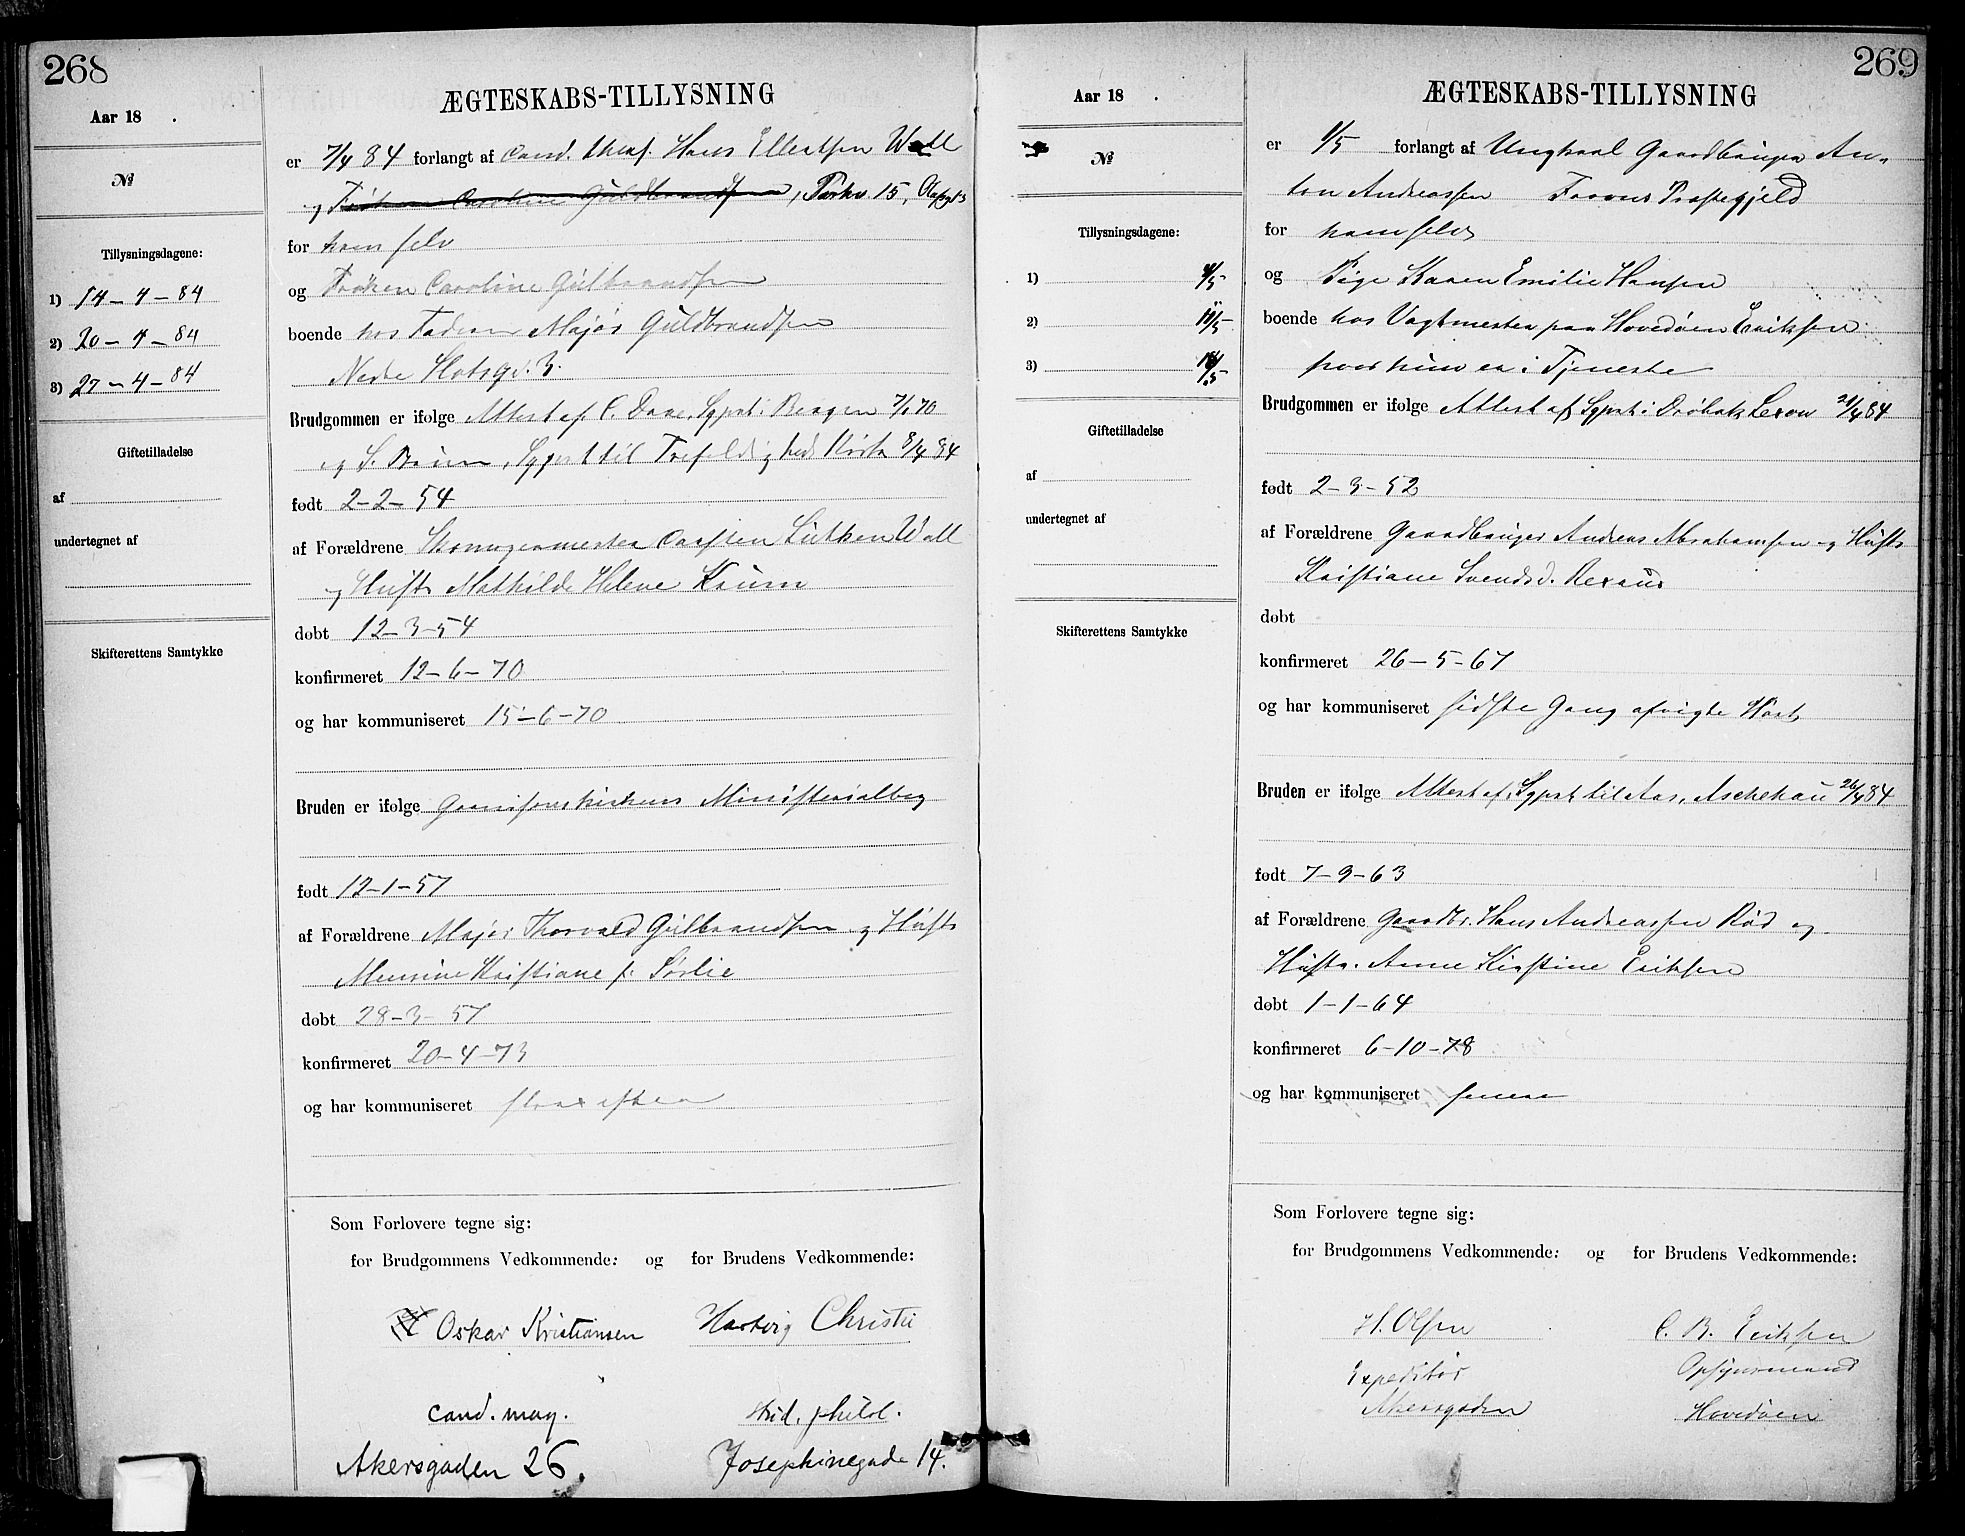 268
Aar 18 .
№
Tillysningsdagene:
1) 14-4-84
2) 20-4-84
3) 27-4-84
Giftetilladelse
af
undertegnet af
Skifterettens Samtykke
ÆGTESKABS-TILLYSNING
er 7/4 84 forlangt af Cand. theol. Hans Ellertsen Wall
og Frøken Caroline Guldbrandsen, Parkv. 15,
for ham selv
og Frøken Caroline Gulbrandsen
boende hos Faderen Major Guldbrandsen
Nedre Slotsgd. 3.
Brudgommen er ifølge Attest af C. Daae, Sgpst i Bergen 7/1 70
og S. Bruun, Sgpst til Trefoldigheds Kirke 8/4 84
født 2-2-54
af Forældrene Carsten Lütken Wall
og Hustr Mathilde Helene Krum
døbt 12-3-54
konfirmeret 12-6-70
og har kommuniseret 15-6-70
Bruden er ifølge Garnisonskirkens Ministerialbog
født 12-1-57
af Forældrene Major Thorvald Gulbrandsen og Hustr
Kristiane f. Sørlie
døbt 28-3-57
konfirmeret 20-4-73
og har kommuniseret
Som Forlovere tegne sig:
for Brudgommens Vedkommende: og for Brudens Vedkommende:
Oskar Kristiansen Hartvig Christie
cand. mag. stud. philol.
Akersgaden 26. Josephinegade 14.
269
Aar 18 .
№
Tillysningsdagene:
1) 4/5
2) 11/5
3) 18/5
Giftetilladelse
af
undertegnet af
Skifterettens Samtykke
ÆGTESKABS-TILLYSNING
er 1/5 forlangt af Ungkarl Gaardbruger An-
ton Andreassen Præstegjeld
for ham selv
og Pige Karen Emilie Hansen
boende hos Vagtmester paa Hovedøen Eriksen
hvor hun er i Tjeneste
Brudgommen er ifølge Attest af Sgpst i Drøbak Lexow 21/4 84
født 2-3-52
af Forældrene Gaardbruger Andreas Abrahamsen og Hustr
Kristiane Svendsd.
døbt
konfirmeret 26-5-67
og har kommuniseret sidste Gang afvigte Høst
Bruden er ifølge Attest af Sgpst til Aas, Aschehou 26/4 84
født 7-9-63
af Forældrene Gaardbr. Hans Andreassen Rød og
Hustr. Anne Kirstine Eriksen
døbt 1-1-64
konfirmeret 6-10-78
og har kommuniseret senere
Som Forlovere tegne sig:
for Brudgommens Vedkommende: og for Brudens Vedkommende:
H. Olsen C. B. Eriksen
Expeditør Opsynsmand
Akersgaden Hovedøen